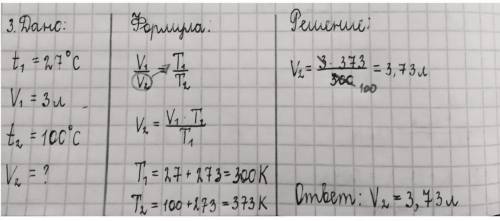 3. Дано:
t₁ = 27°C
V₁ = 3л
t₂ = 100°C
V₂ = ?
Формула:
V₁/V₂ = T₁/T₂
V₂ = V₁ · T₂ / T₁
T₁ = 27 + 273 = 300 K
T₂ = 100 + 273 = 373 K
Решение:
V₂ = 3 · 373 / 300 100 = 3,73л
Ответ: V₂ = 3,73л